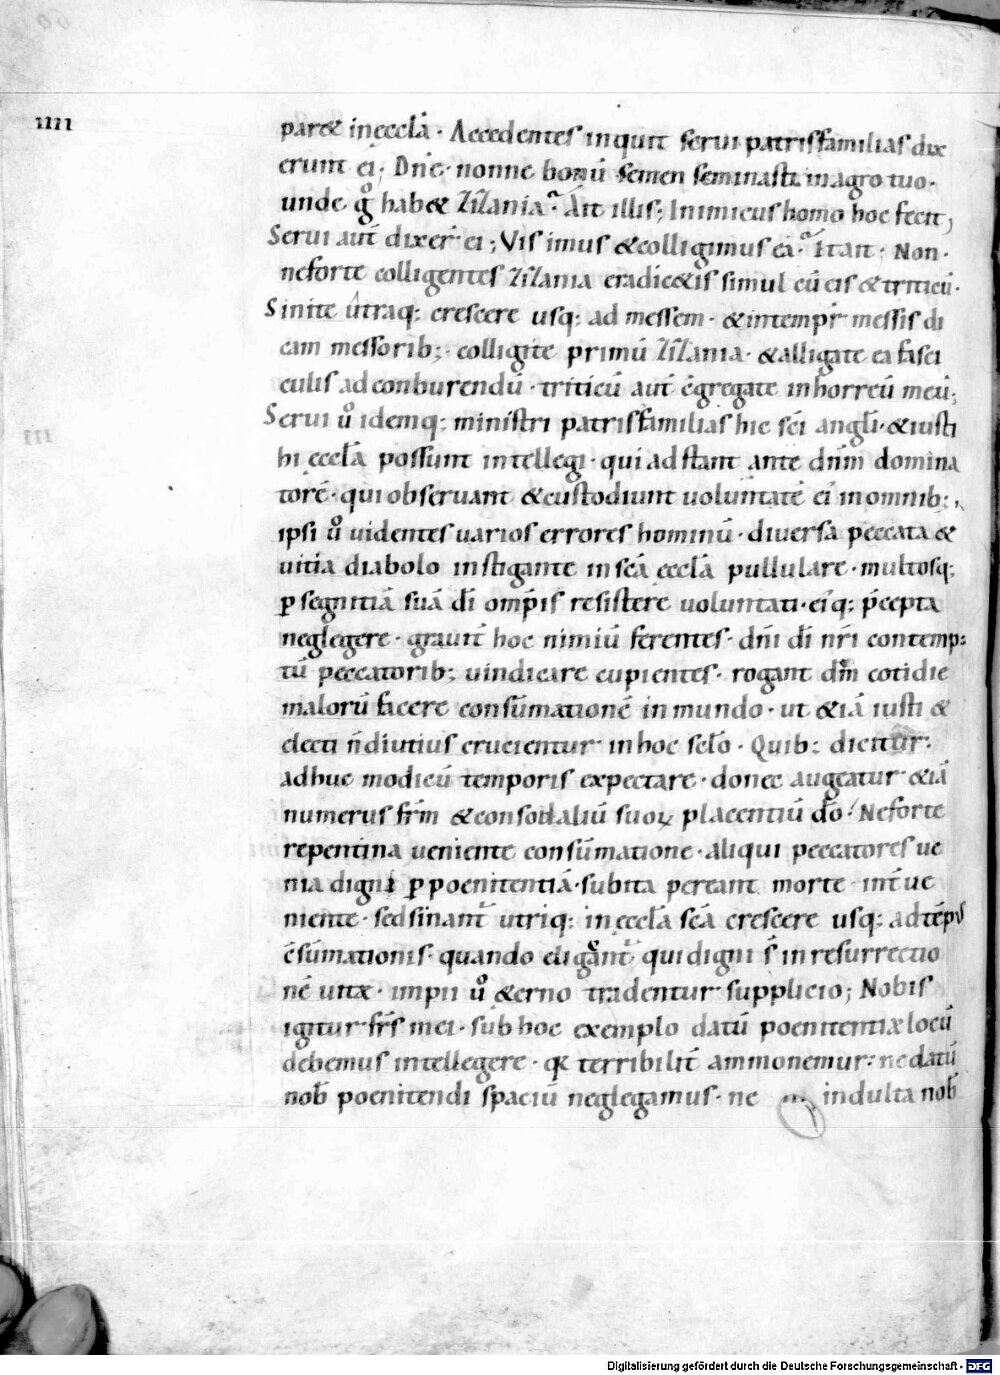 IIII
par& inęcclā· Accedentes inquit serui patrisfamilias dix
erunt ei; Dn̄e· nonne bonū semen seminasti inagro tuo·
unde gͦ hab& zizania? Ait illis; Inimicus homo hoc fecit;
Serui aut̄ dixer̄ ei; Vis imus &colligimus ea? Itait· Non·
neforte colligentes zizania eradic&is simul cū eis &triticū·
Sinite utraq; crescere usq; ad messem· &intempr̄ messis di
cam messorib;· colligite primū zizania· &alligate ea fasci
culis adconburendū· triticū aut̄ c̄gregate inhorreū meū;
Serui uͦ idemq; ministri patrisfamilias hic sc̄i angl̄i· &iusti
hi ęcclā possunt intellegi· qui adstant ante dn̄m domina
torē· qui observant &custodiunt uoluntatē ei' inomnib;·
ipsi uͦ uidentes uarios errores hominū· diversa peccata &
uitia diabolo instigante insc̄ā ęcclā pullulare· multosq;
ꝑ segnitiā suā dī omp̄is resistere uoluntati· ei'q; p̄cepta
neglegere· grauit̄ hoc nimiū ferentes· dn̄i dī nr̄i contemp:
tū peccatorib; uindicare cupientes· rogant dn̄m cotidie
malorū facere consūmationē in mundo· ut &iā iusti &
electi n̄diutius crucientur inhoc sclō· Quib; dicitur:
adhuc modicū temporis expectare· donec augeatur &iā
numerus fr̄m &consodaliū suoꝝ placentiū dō· Neforte
repentina ueniente consūmatione· aliqui peccatores ue
nia digni ꝑ poenitentiā· subita pereant morte int̄ue
niente· sedsinant̄ utriq; inęcclā sc̄ā crescere usq; adtēpꝰ
c̄sūmationis· quando eligant̄ quidigni s̄ inresurrectio
nē uitæ· impii uͦ &erno tradentur supplicio; Nobis
igitur fr̄s mei· sub hoc exemplo datū poenitentiæ locū
debemus intellegere· q̄ terribilit̄ ammonemur: nedatū
nob̄ poenitendi spaciū neglegamus· ne indulta nob̄
Digitalisierung gefördert durch die Deutsche Forschungsgemeinschaft - DFG